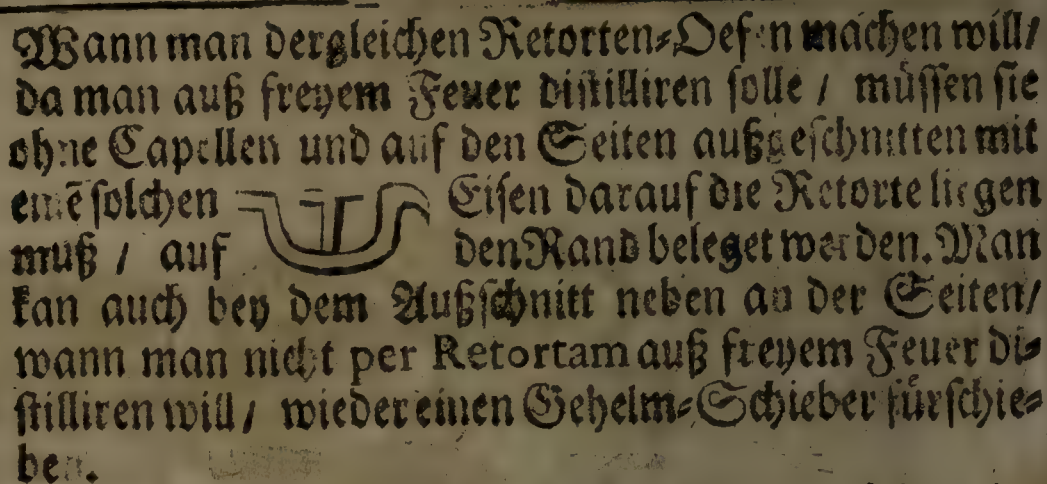 Wann man dergleichen Retorten-Oefen machen will/
da man auß freyem Feuer distilliren solle / müssen sie
ohne Capellen und auf den Seiten außgeschnitten mit
einē solchen Eisen darauf die Retorte liegen
muß / auf den Rand beleget werden. Man
kan auch bey dem Außschnitt neben an der Seiten/
wann man nicht per Retortam auß freyem Feuer di-
stilliren will / wieder einen Gehelm-Schieber fürschie-
ben.